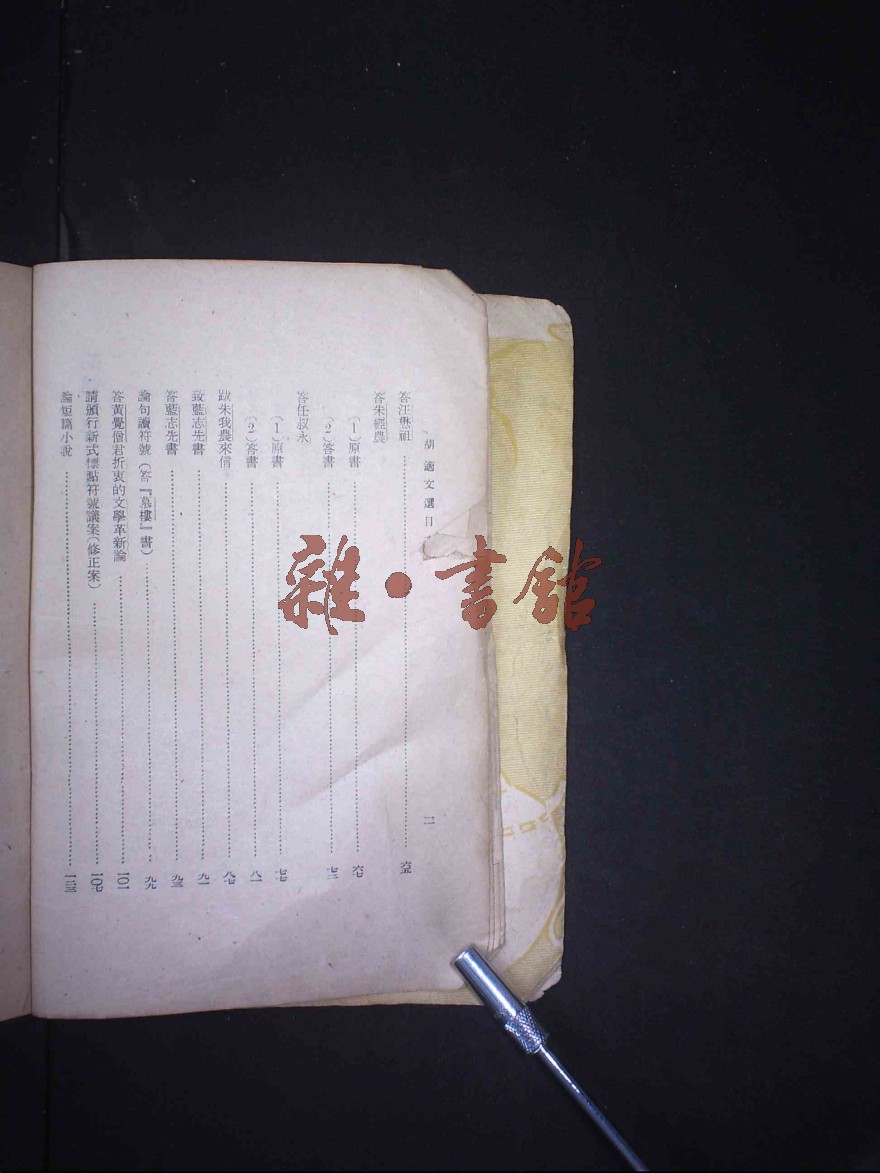 胡適文選目
二
答汪懋祖……六五
答朱經農
(1)原書……六七
(2)答書……七三
答任叔永
(1)原書……七七
(2)答書……八一
跋朱我農來信……八七
致藍志先書……九一
答藍志先書……九三
論句讀符號(答『慕樓』書)……九九
答黃覺僧君折衷的文學革新論……一〇一
請頒行新式標點符號議案(修正案)……一〇七
論短篇小說……一二三
雜·書館